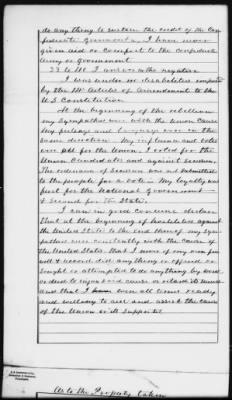 do any thing to sustain the credit of the Con-
federate Government. I have never
given aid or comfort to the Confederate
Army or government
I answer in the negative
I was under no disabilities imposed
by the 14th Article of Amendment to the
U.S. Constitution
At the beginning of the rebellion
my sympathies were with the Union Cause
My feelings and language were in the
same direction. My influence and votes
were all for the Union. I voted for the
Union Candidates and against secession.
The ordinance of secession was not submitted
to the people for a vote. My loyalty was
first for the National Government
& second for the State.
I can in good conscience declare
that at the beginning of hostilities against
the United States to the end thereof my sym-
pathies were constantly with the cause of
the United States that I never of my own free
will & accord did anything or offered or
sought or attempted to do anything by word
or deed to injure said cause or retard its success
and that I was at all times ready
and willing to aid and assist the cause
of the Union or its supporters
As to the Property taken